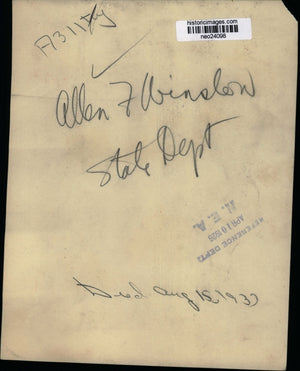 historicimages.com
neo24098
Allen F Winslow
State Dept
REFERENCE DEPT.
APR 10 1929
N. E. A.
Died Aug 15, 1933